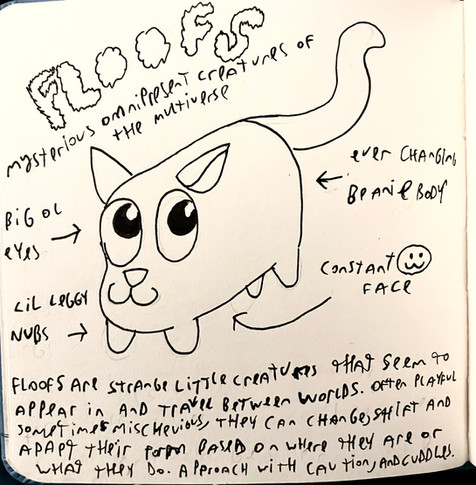 FLOOFS
mysterious omnipresent creatures of
the multiverse
ever CHANGING
BEANIE BODY
BiG OL
eyes
CONSTANT
FACE
LiL LEGGY
NUBS
FLOOFS ARE STRANGE LITTLE CREATURES THAT SEEM TO
APPEAR IN AND TRAVEL BETWEEN WORLDS. OFTEN PLAYFUL
SOMETIMES MISCHEVIOUS, THEY CAN CHANGE, SHIFT AND
ADAPT THEIR FORM BASED ON WHERE THEY ARE OR
WHAT THEY DO. APPROACH WITH CAUTION, AND CUDDLES.